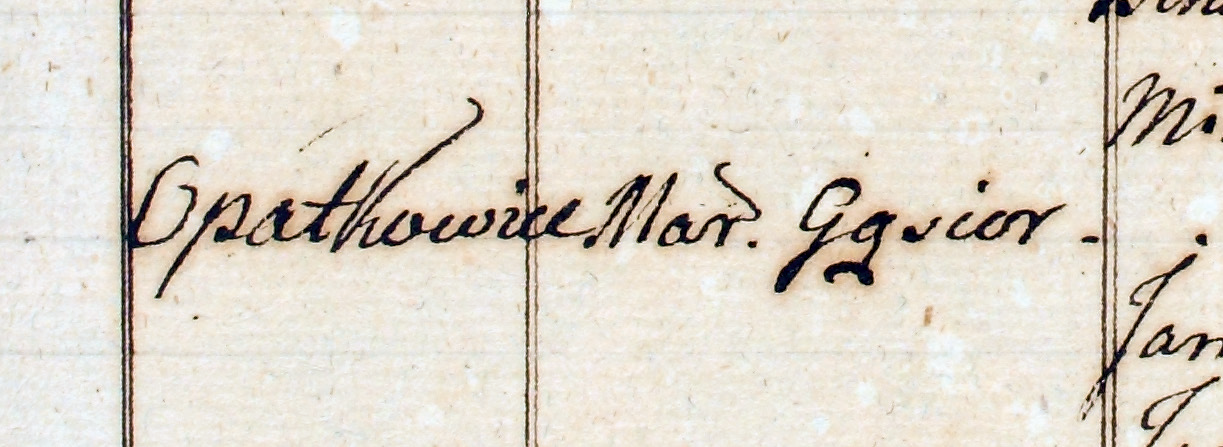 Opatkowice Mar. Gąsior -
Jan